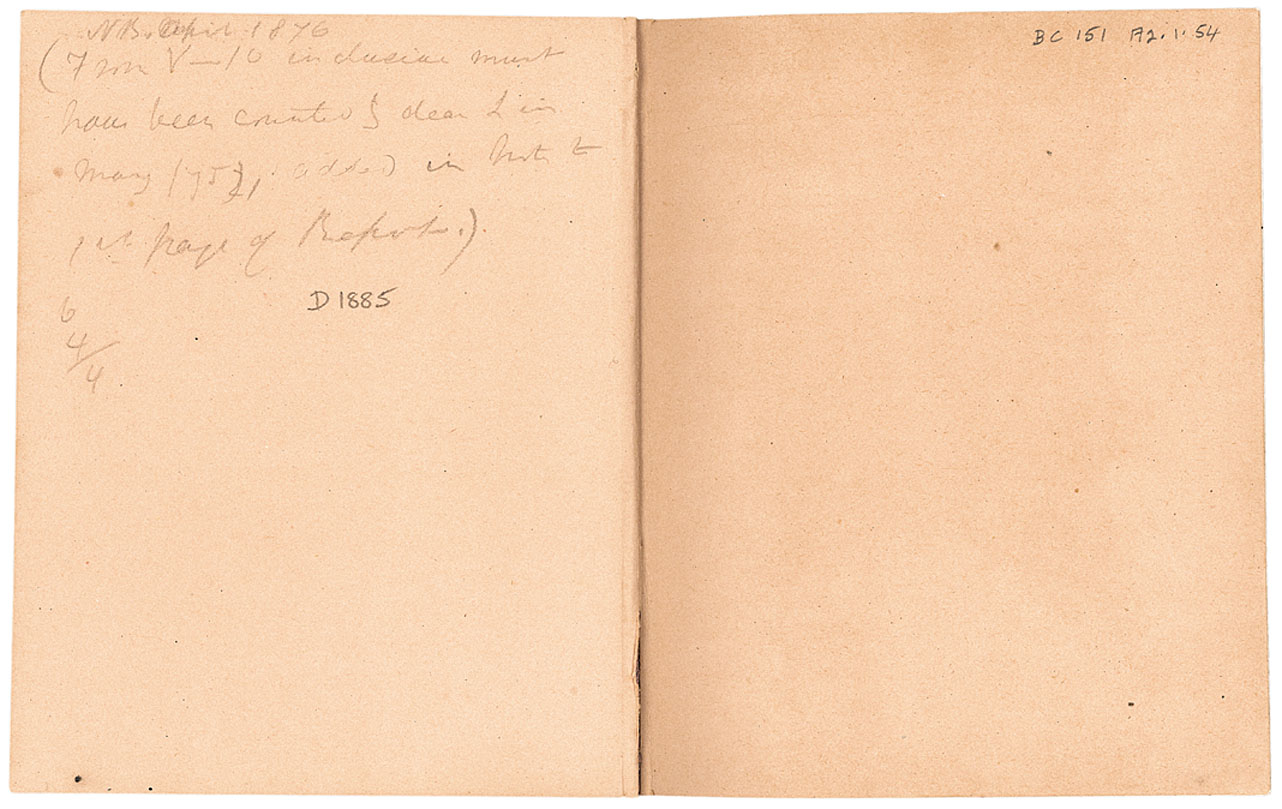 NB. April 1876
(From V—10 inclusive must
have been counted by dear L in
May 1875, added in Note to
1st page of Report.).
D 1885
6
4/4
BC 151 A2.1.54